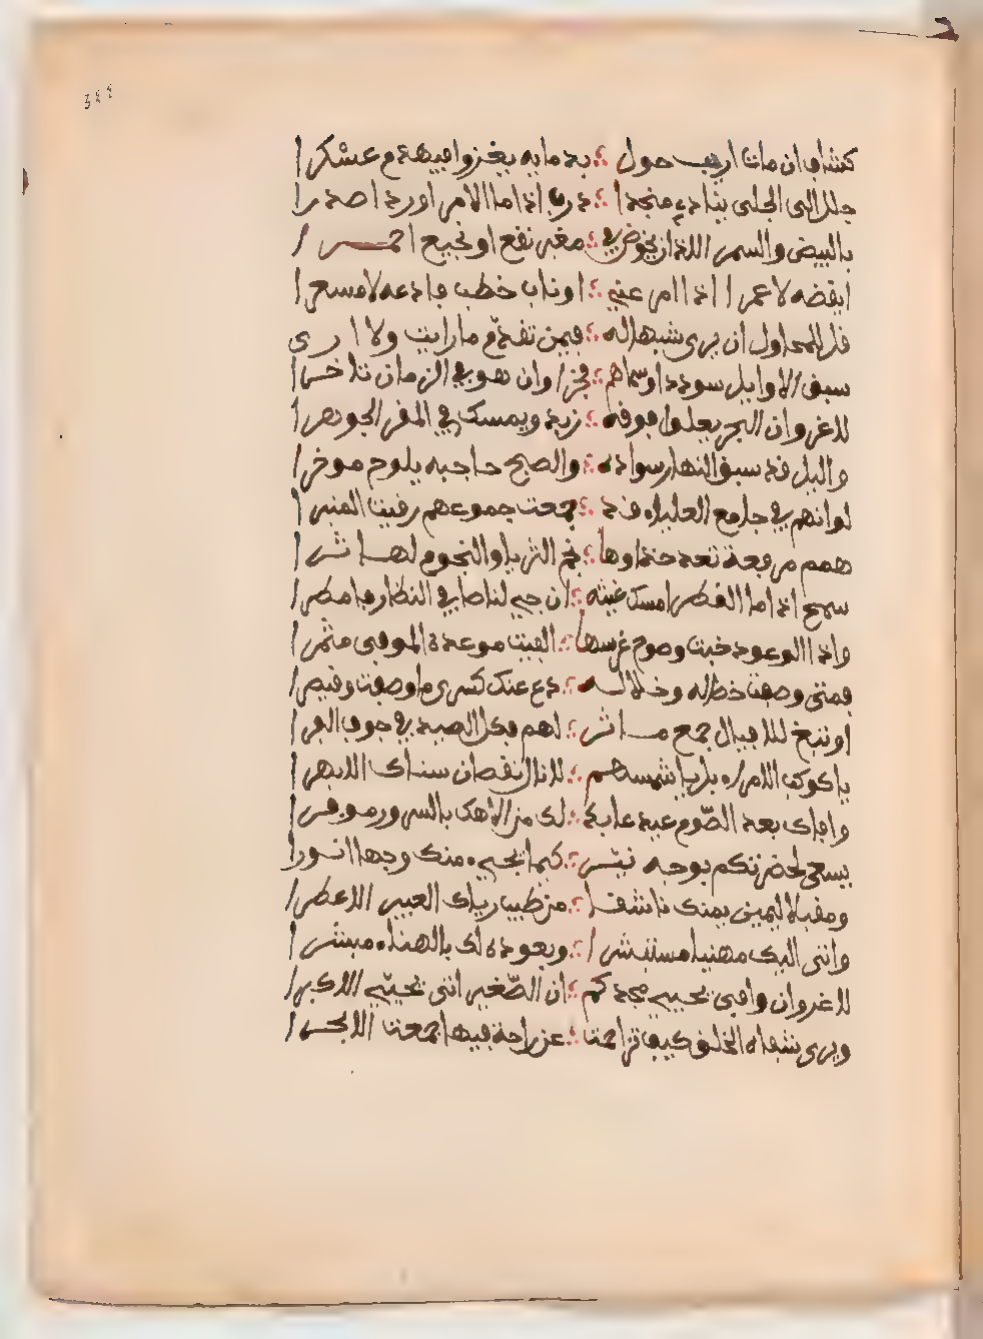 كشاف ان مات ارهب حول ؛ بدهايه يغزوا فيهدم عسكرا
جلل الى الجلى ينادى منجدا ؛ درب اذا ما الامر اورد اصدرا
بالبيض والسمر اللذان يخوض في ؛ مغبر نقع او نجيع احمـــرا
ايقضه لا عمرا اذا امر عنى ؛ او ناب خطب فادعه لا مسعرا
قل للمحاول ان يرى شبها له ؛ فيمن تقدم ما رايت ولا ارى
سبق الاوايل سوددا وسماهم ؛ فخرا وان هو في الزمان تاخرا
لا غرو ان البحر يعلوا فوقه ؛ زبد ويمسك في المقر الجوهرا
والليل قد سبق النهار سواده ؛ والصبح حاجبه يلوح موخرا
لو انهم في جامع العلياء قد ؛ جمعت جموعهم رقيت المنبرا
همم مرفعة تعد حذاوها ؛ نجم الثريا والنجوم لها ثرا
سمح اذا ما القطر امسك غيثه ؛ ان جيء لناصا في النظار فامطرا
واذا الوعود خبت وصوح غرسها ؛ الفيت موعده الموفى مثمرا
فمتى وصفت خطاله وخلالـــه ؛ دع عنك كسرى ما وصفت وقيصرا
او تبغ للاقيال جمع مـــاثر ؛ لهم فكل الصيد في جوف الفرا
يا كوكب الامراء بل يا شمسهم ؛ لا نال نقصان سناك الابهرا
وافاك بعد الصوم عيد عايد ؛ لك من الاهك بالسرور موفرا
يسعى لحضرتكم بوجه نيـــر ؛ كيما يحيي منك وجها انورا
ومقبلا ليمين يمنك ناشقا ؛ من طيب رياك العبير الاعطرا
واتى اليك مهنيا مستبشرا ؛ وبعوده لك بالهناء مبشرا
لا غرو ان وافى يحيي مجدكم ؛ ان الصغير اتى يحيي الاكبرا
ويرى شفاه الخلق كيف تزاحمت ؛ عن راحة فيها جمعت الابحـرا